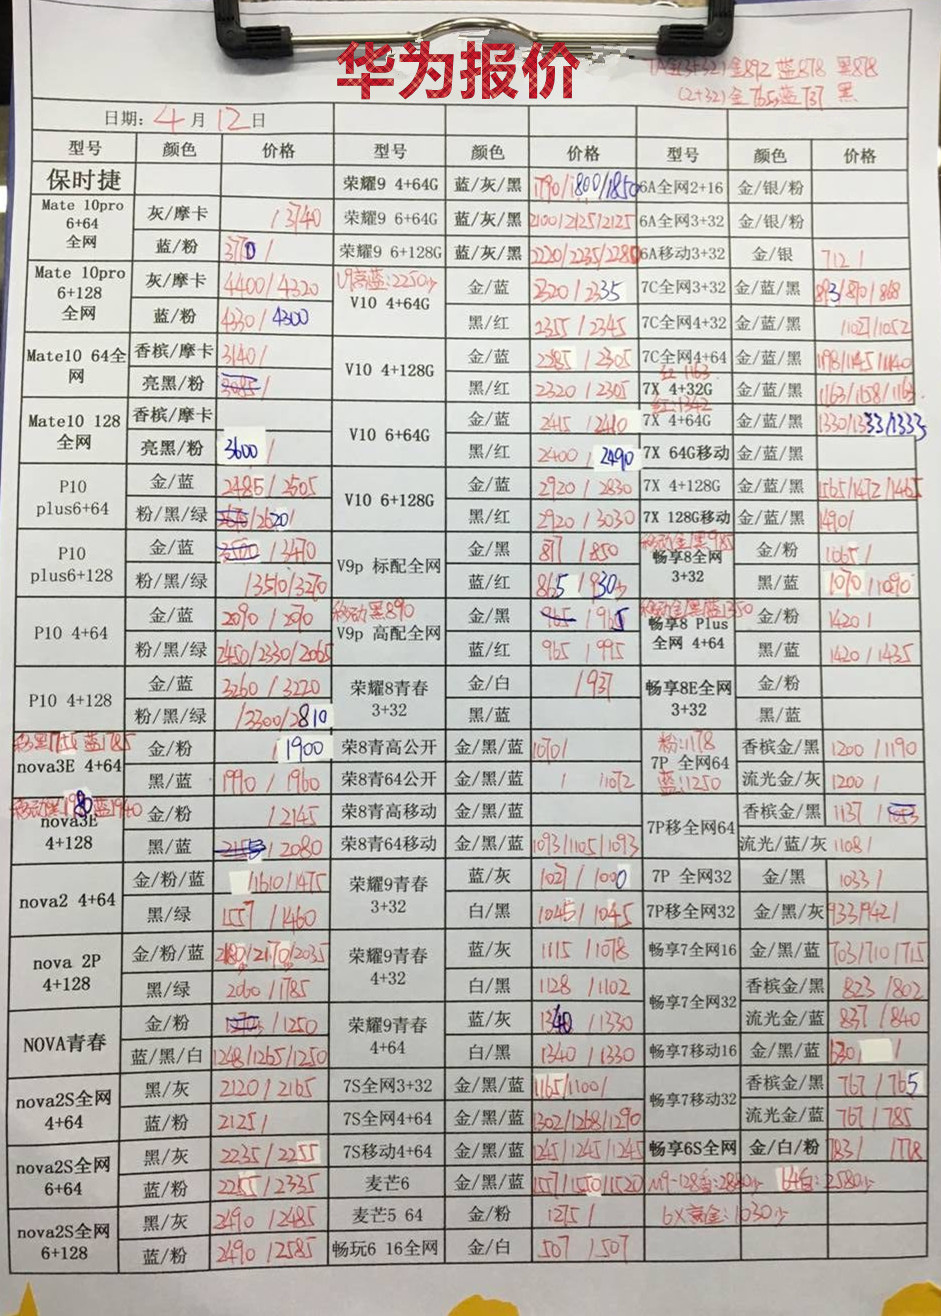 华为报价
7A全(3+32)金892 蓝878 黑878
(2+32)金765蓝737 黑
日期: 4月12日
型号 颜色 价格 型号 颜色 价格 型号 颜色 价格
保时捷 荣耀9 4+64G 蓝/灰/黑 1790/1800/1850 6A全网2+16 金/银/粉
Mate 10pro 6+64 全网 灰/摩卡 /3740 荣耀9 6+64G 蓝/灰/黑 2100/2125/2125 6A全网3+32 金/银/粉
蓝/粉 3710/ 荣耀9 6+128G 蓝/灰/黑 2220/2235/2280 6A移动3+32 金/银 712/
Mate 10pro 6+128 全网 灰/摩卡 4400/4320 V10 4+64G 金/蓝 2320/2335 7C全网3+32 金/蓝/黑 893/870/868
蓝/粉 4330/4300 黑/红 2355/2345 7C全网4+32 金/蓝/黑 /1027/1052
Mate10 64全网 香槟/摩卡 3140/ V10 4+128G 金/蓝 2285/2305 7C全网4+64 金/蓝/黑 1198/1145/1140
红1163
亮黑/粉 3085/ 黑/红 2320/2305 7X 4+32G 1163/1158/1163
红:1342
Mate10 128全网 香槟/摩卡 V10 6+64G 金/蓝 2415/2410 7X 4+64G 金/蓝/黑 1330/1333/1333
亮黑/粉 3600/ 黑/红 2400/2490 7X 64G移动 金/蓝/黑
P10 plus6+64 金/蓝 2485/2505 V10 6+128G 金/蓝 2920/2830 7X 4+128G 金/蓝/黑 1565/1472/1465
粉/黑/绿 /2620/ 黑/红 2920/3030 7X 128G移动 金/蓝/黑 1490/
移动金/黑985
P10 plus6+128 金/蓝 3500/3470 V9p 标配全网 金/黑 817/850 畅享8全网 3+32 金/粉 1065/
粉/黑/绿 /3510/3270 蓝/红 865/930 黑/蓝 1070/1090
移动黑890 移动金/黑/蓝1350
P10 4+64 金/蓝 2090/2070 V9p 高配全网 金/黑 965/965 畅享8 Plus 全网 4+64 金/粉 1420/
粉/黑/绿 2450/2330/2065 蓝/红 965/995 黑/蓝 1420/1435
P10 4+128 金/蓝 3260/3220 荣耀8青春 3+32 金/白 /937 畅享8E全网 3+32 金/粉
粉/黑/绿 /3300/2810 黑/蓝 黑/蓝
nova3E 4+64 金/粉 /1900 荣8青高公开 金/黑/蓝 1070/ 粉:1178 7P 全网64 蓝:1250 香槟金/黑 1200/1190
黑/蓝 1990/1960 荣8青64公开 金/黑/蓝 / /1072 流光金/灰 1200/
nova3E 4+128 金/粉 /2145 荣8青高移动 金/黑/蓝 7P移全网64 香槟金/黑 1137/
黑/蓝 /2080 荣8青64移动 金/黑/蓝 1093/1105/1093 流光/蓝/灰 1108/
nova2 4+64 金/粉/蓝 /1610/1475 荣耀9青春 3+32 蓝/灰 1027/1000 7P 全网32 金/黑 1033/
黑/绿 1557/1460 白/黑 1045/1045 7P移全网32 金/黑/灰 933/942/
nova 2P 4+128 金/粉/蓝 2180/2170/2035 荣耀9青春 4+32 蓝/灰 1115/1078 畅享7全网16 金/黑/蓝 703/710/715
黑/绿 2060/1785 白/黑 1128/1102 畅享7全网32 香槟金/黑 823/802
NOVA青春 金/粉 /1250 荣耀9青春 4+64 蓝/灰 1340/1330 流光金/蓝 837/840
蓝/黑/白 1248/1265/1250 白/黑 1340/1330 畅享7移动16 金/黑/蓝 630/ /
nova2S全网 4+64 黑/灰 2120/2165 7S全网3+32 金/黑/蓝 1165/1100/ 畅享7移动32 香槟金/黑 767/765
蓝/粉 2125/ 7S全网4+64 金/黑/蓝 1302/1268/1290 流光金/蓝 767/785
nova2S全网 6+64 黑/灰 2235/2255 7S移动4+64 金/黑/蓝 1245/1245/1245 畅享6S全网 金/白/粉 783/ 778
蓝/粉 2255/2335 麦芒6 金/黑/蓝 1571/1550/1520
nova2S全网 6+128 黑/灰 2490/2485 麦芒5 64 金/粉 1275/ 6X黄金:1030
蓝/粉 2490/2585 畅玩6 16全网 金/白 507/507